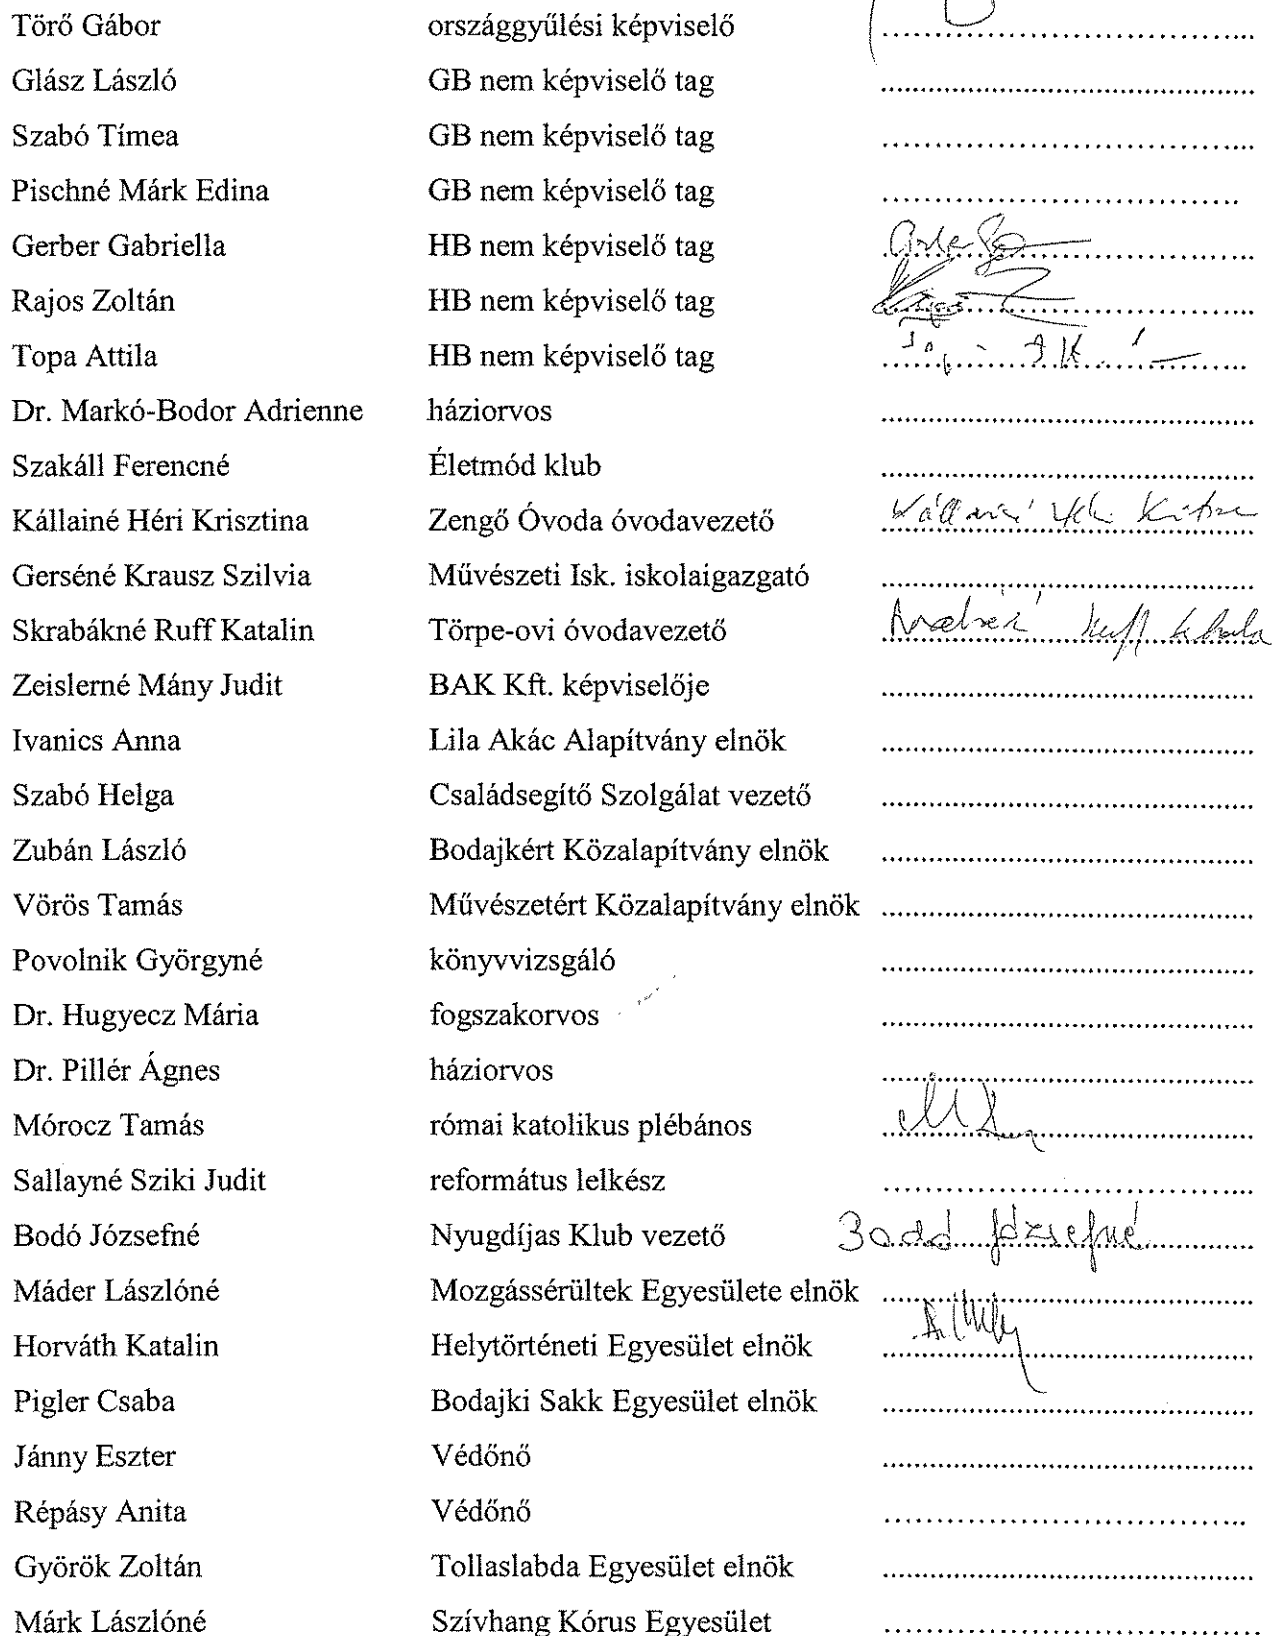 Törő Gábor országgyűlési képviselő ........................................
Glász László GB nem képviselő tag ........................................
Szabó Tímea GB nem képviselő tag ........................................
Pischné Márk Edina GB nem képviselő tag ........................................
Gerber Gabriella HB nem képviselő tag ........................................
Rajos Zoltán HB nem képviselő tag ........................................
Topa Attila HB nem képviselő tag ........................................
Dr. Markó-Bodor Adrienne háziorvos ........................................
Szakáll Ferencné Életmód klub ........................................
Kállainé Héri Krisztina Zengő Óvoda óvodavezető ........................................
Gerséné Krausz Szilvia Művészeti Isk. iskolaigazgató ........................................
Skrabákné Ruff Katalin Törpe-ovi óvodavezető ........................................
Zeislerné Mány Judit BAK Kft. képviselője ........................................
Ivanics Anna Lila Akác Alapítvány elnök ........................................
Szabó Helga Családsegítő Szolgálat vezető ........................................
Zubán László Bodajkért Közalapítvány elnök ........................................
Vörös Tamás Művészetért Közalapítvány elnök ........................................
Povolnik Györgyné könyvvizsgáló ........................................
Dr. Hugyecz Mária fogszakorvos ........................................
Dr. Pillér Ágnes háziorvos ........................................
Mórocz Tamás római katolikus plébános ........................................
Sallayné Sziki Judit református lelkész ........................................
Bodó Józsefné Nyugdíjas Klub vezető Bodó Józsefné
Máder Lászlóné Mozgássérültek Egyesülete elnök ........................................
Horváth Katalin Helytörténeti Egyesület elnök ........................................
Pigler Csaba Bodajki Sakk Egyesület elnök ........................................
Jánny Eszter Védőnő ........................................
Répásy Anita Védőnő ........................................
Györök Zoltán Tollaslabda Egyesület elnök ........................................
Márk Lászlóné Szívhang Kórus Egyesület ........................................